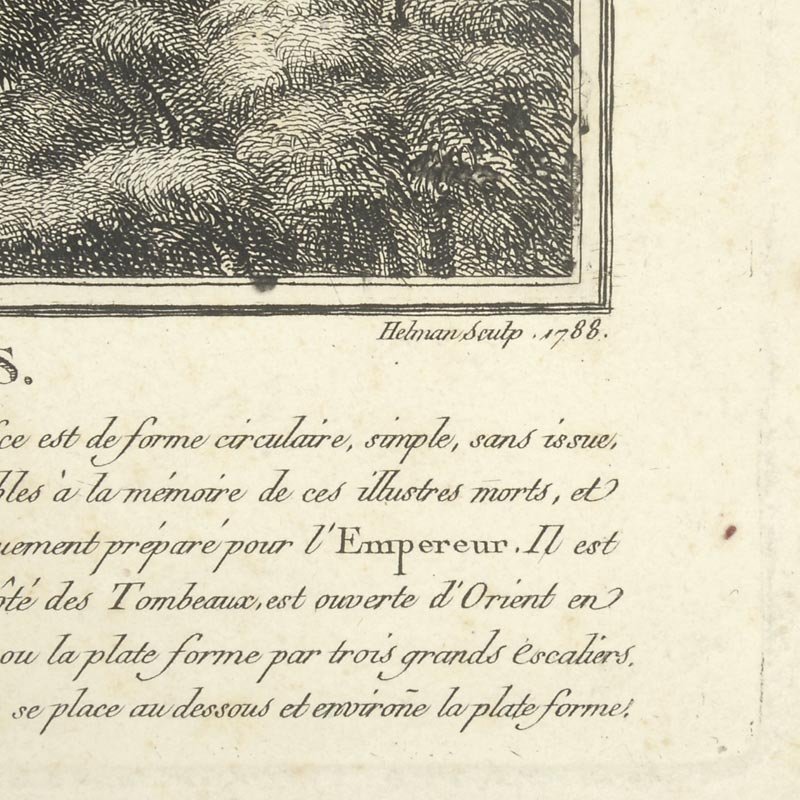 Helman Sculp. 1788.
S.
ce est de forme circulaire, simple, sans issue,
bles à la mémoire de ces illustres morts, et
uement préparé pour l'Empereur. Il est
ôté des Tombeaux, est ouverte d'Orient en
ou la plate forme par trois grands Escaliers.
se place au dessous et enviroñe la plate forme.